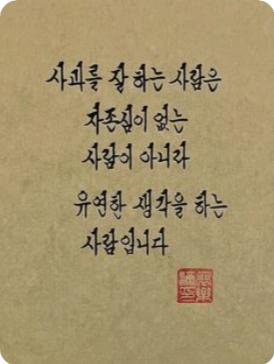 사과를 잘 하는 사람은
자존심이 없는
사람이 아니라
유연한 생각을 하는
사람입니다